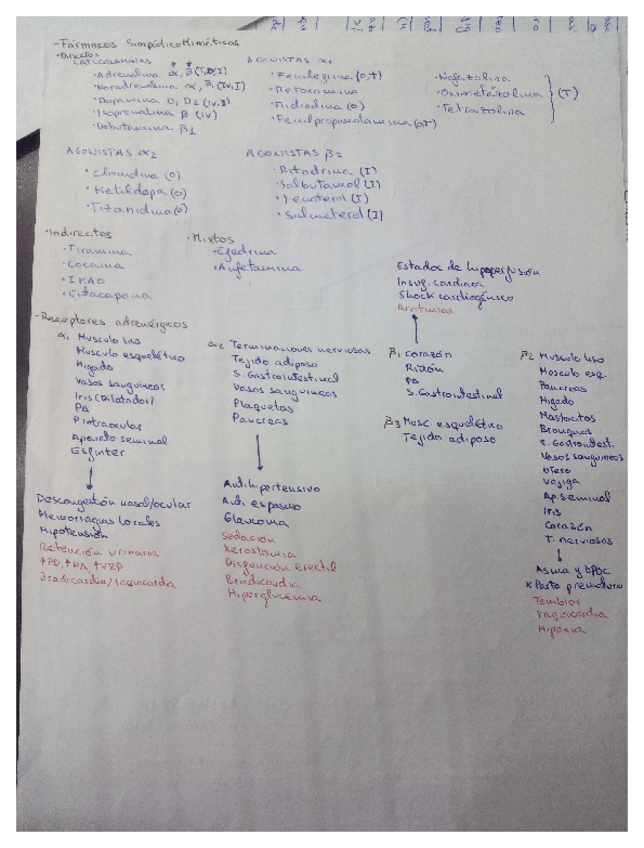 -Fármacos SimpáticoMiméticos
•Directos
CATECOLAMINAS
•Adrenalina α, β (T,IV,I)
•Noradrenalina α, β₁ (IV,I)
•Dopamina D₁ D₂ (IV,I)
•Isoprenalina β (IV)
•Dobutamina β₁
AGONISTAS α₁
•Fenilegrina (O,T)
•Metoxamina
•Midodina (O)
•Fenilpropanolamina (O,T)
•Nafazolina
•Oximetazolina (T)
•Tetrazolina
AGONISTAS α₂
•Clonidina (O)
•Metildopa (O)
•Tizanidina (O)
AGONISTAS β₂
•Ritodrina (I)
•Salbutamol (I)
•Fenoterol (I)
•Salmeterol (I)
•Indirectos
•Tiramina
•Cocaina
•IMAO
•Entacapona
•Mixtos
•Efedrina
•Anfetamina
-Receptores adrenérgicos
α₁ Musculo liso
Musculo esquelético
Higado
Vasos sanguineos
Iris (Dilatador)
PA
P intraocular
Aparato seminal
Esfinter
Descongestión nasal/ocular
Hemorragias locales
Hipotensión
Retención urinaria
↑PD, ↑PA, ↑VRP
Bradicardia/Taquicardia
α₂ Terminaciones nerviosas
Tejido adiposo
S. Gastrointestinal
Vasos sanguineos
Plaquetas
Pancreas
Antihipertensivo
Anti espasmo
Glaucoma
Sedación
Xerostomia
Disfunción erectil
Bradicardia
Hiperglucemia
Estados de hipoperfusión
Insuf. cardiaca
Shock cardiogénico
Arritmias
β₁ Corazón
Riñón
PA
S. Gastrointestinal
β₃ Musc. esquelético
Tejido adiposo
β₂ Musculo liso
Musculo esq.
Pancreas
Higado
Mastocitos
Bronquios
S. Gastrointest.
Vasos sanguineos
Utero
Vejiga
Ap. seminal
Iris
Corazón
T. nerviosas
Asma y EPOC
x Parto prematuro
Temblor
Taquicardia
Hipoxia